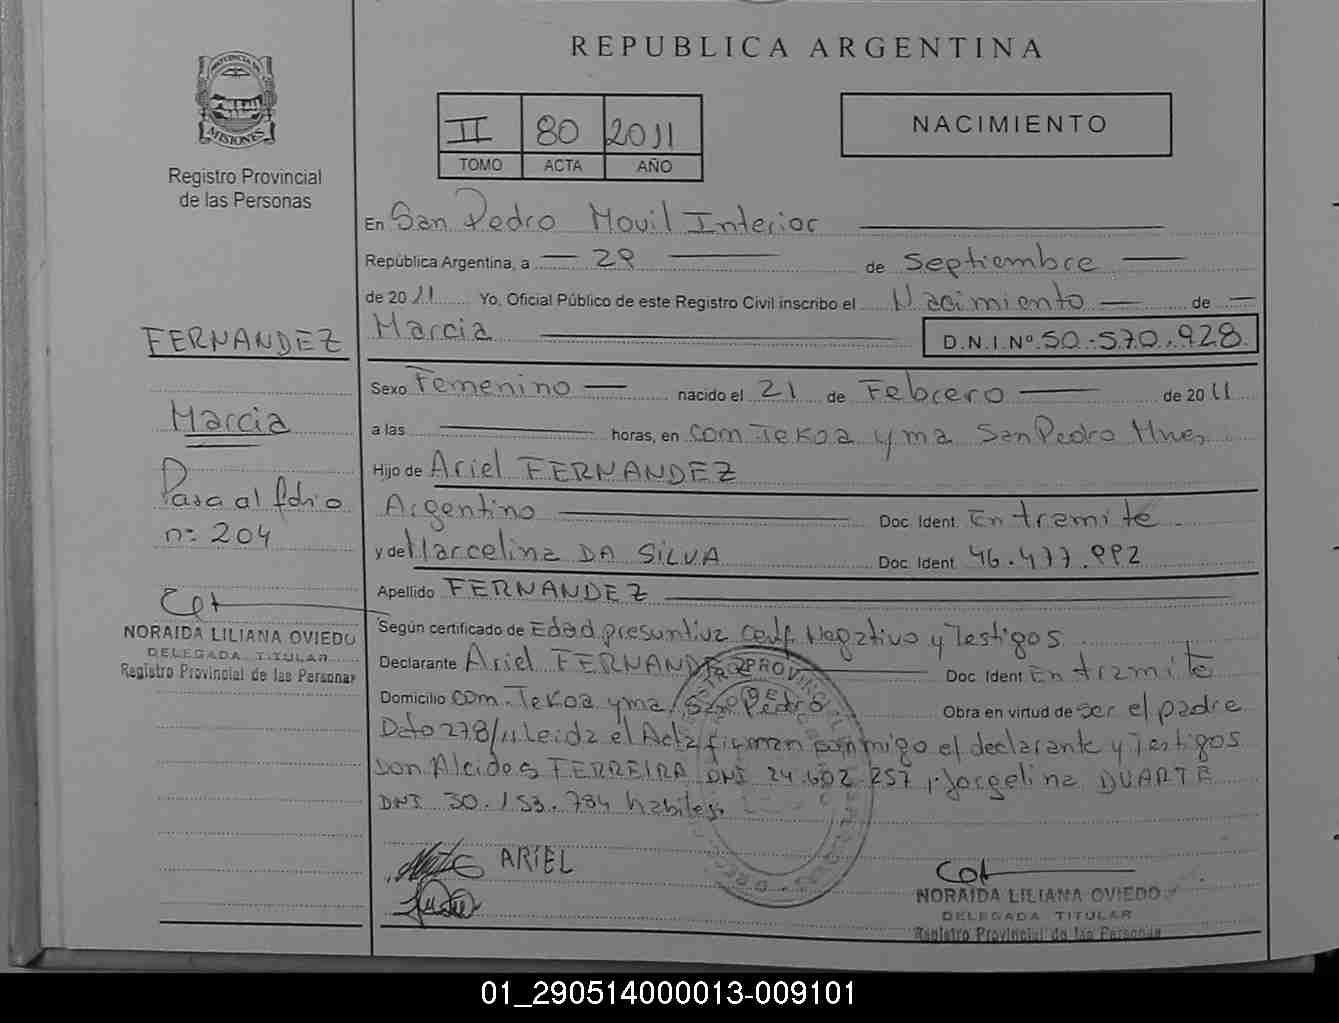 REPUBLICA ARGENTINA
PROVINCIA DE
MISIONES
Registro Provincial
de las Personas
II 80 2011
TOMO ACTA AÑO
NACIMIENTO
En San Pedro Movil Interior
República Argentina, a 29 de Septiembre
de 2011 Yo, Oficial Público de este Registro Civil inscribo el Nacimiento de
Marcia D.N.I.Nº 50.570.928
FERNANDEZ
Marcia
Pasa al folio
nº 204
NORAIDA LILIANA OVIEDO
DELEGADA TITULAR
Registro Provincial de las Personas
Sexo Femenino nacido el 21 de Febrero de 2011
a las horas, en com Tekoa yma San Pedro Mnes
Hijo de Ariel FERNANDEZ
Argentino Doc. Ident. En tramite
y de Marcelina DA SILVA Doc. Ident. 46.477.992
Apellido FERNANDEZ
Según certificado de Edad presuntiva Certf. Negativo y Testigos
Declarante Ariel FERNANDEZ Doc. Ident. En tramite
Domicilio com. Tekoa yma, San Pedro Obra en virtud de ser el padre
Dato 278/11 Leida el Acta firman conmigo el declarante y Testigos
Don Alcides FERREIRA DNI 24.602.257, Jorgelina DUARTE
DNI 30.153.784 habiles
ARIEL
NORAIDA LILIANA OVIEDO
DELEGADA TITULAR
Registro Provincial de las Personas
01_290514000013-009101